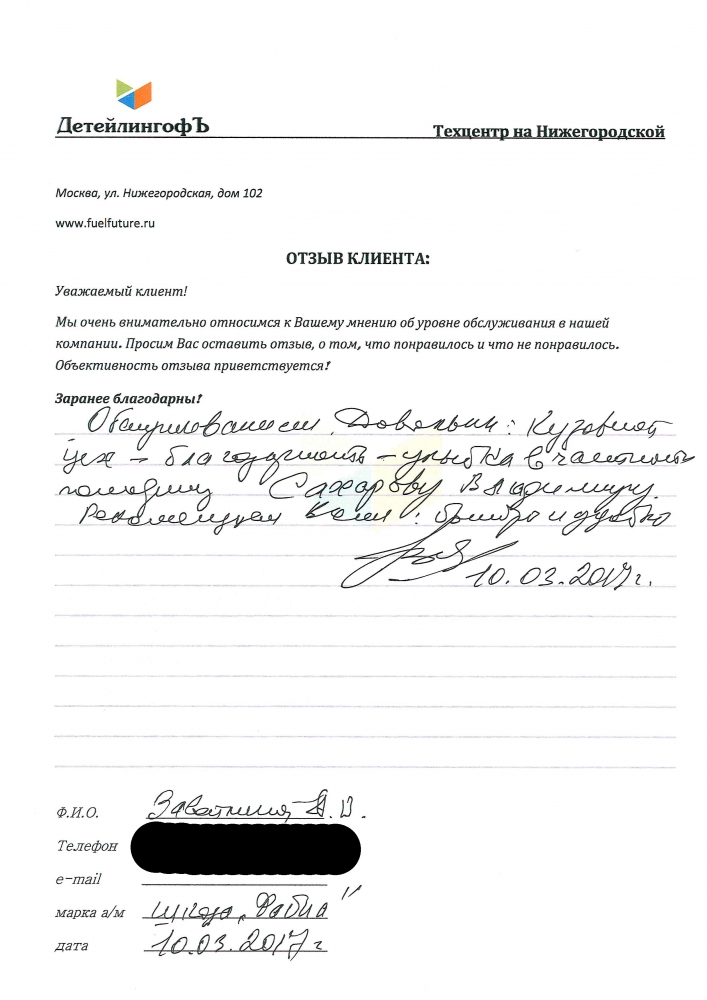 ДетейлингофЪ
Техцентр на Нижегородской
Москва, ул. Нижегородская, дом 102
www.fuelfuture.ru
ОТЗЫВ КЛИЕНТА:
Уважаемый клиент!
Мы очень внимательно относимся к Вашему мнению об уровне обслуживания в нашей
компании. Просим Вас оставить отзыв, о том, что понравилось и что не понравилось.
Объективность отзыва приветствуется!
Заранее благодарны!
Обслуживанием довольны: Кузовной
цех – благодарность – улыбка в частности
Сахарову Владимиру.
Рекомендуем Всем: быстро и удобно
10.03.2017г.
Ф.И.О.
Телефон
e-mail
марка а/м шкода „Фабиа"
дата 10.03.2017г